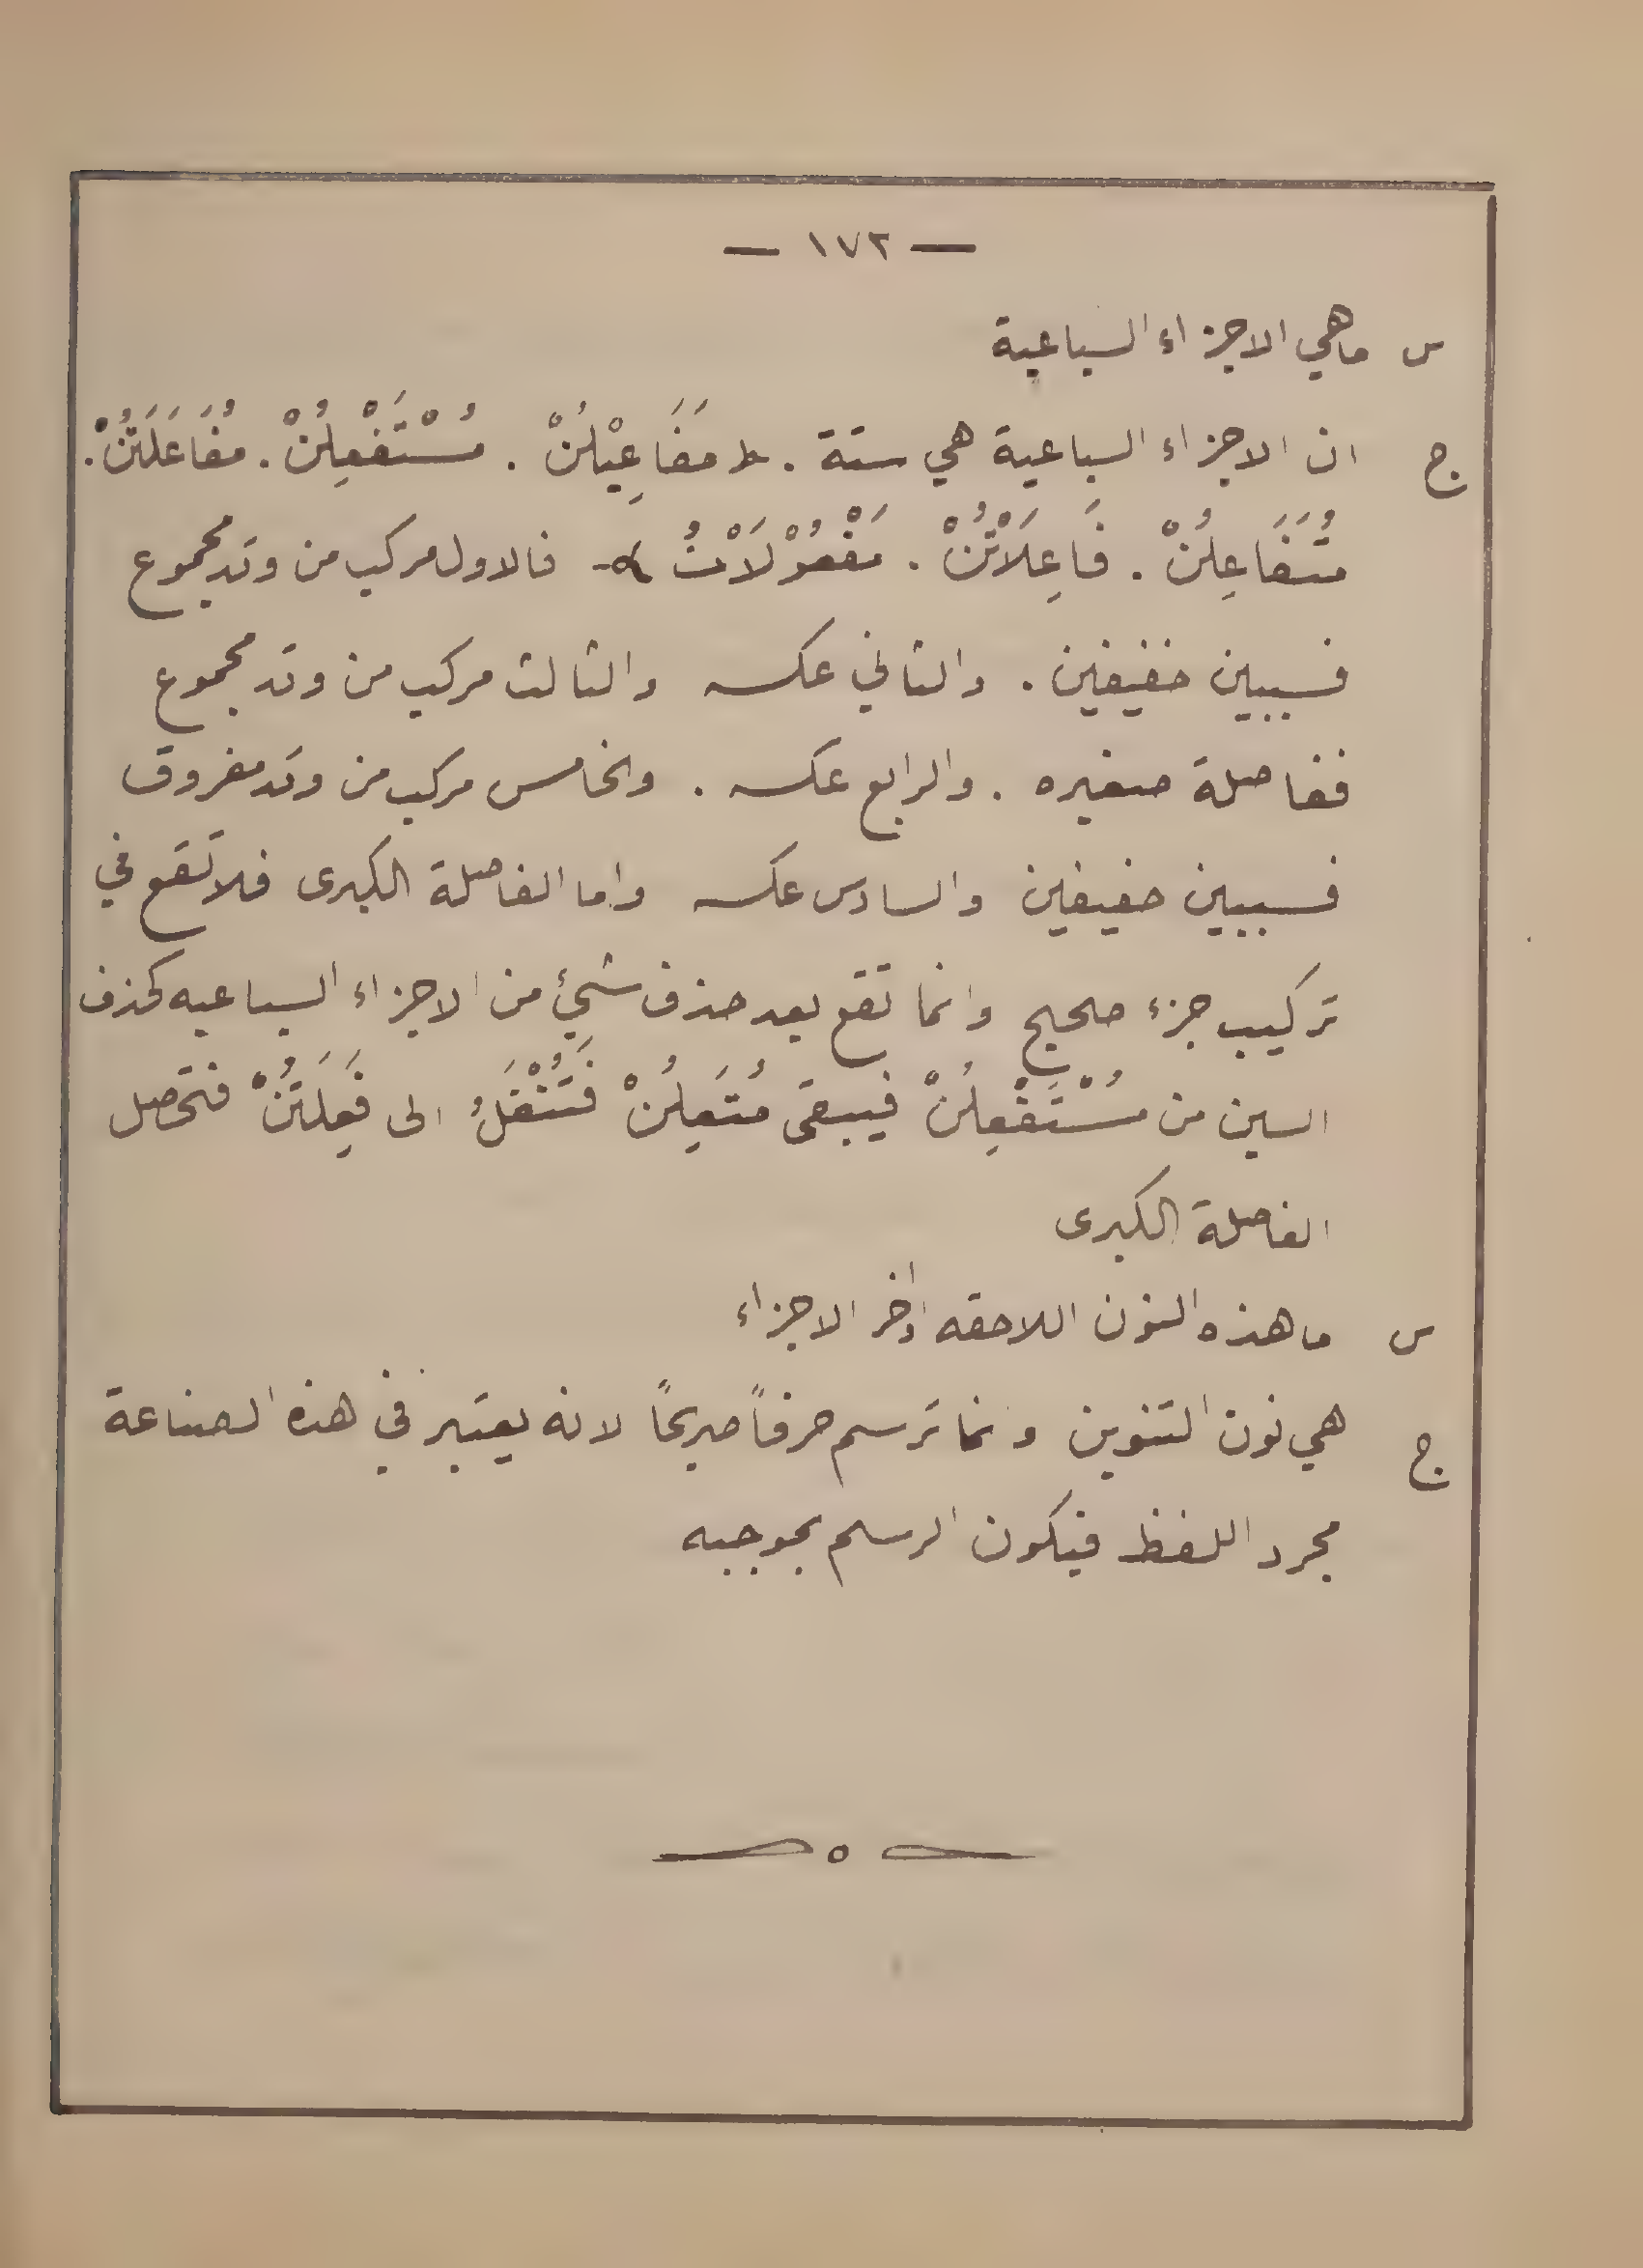 — ١٧٢ —
س ماهي الاجزاء السباعية
ج ان الاجزاء السباعية هي ستة . مَفَاعِيْلُنْ . مُسْتَفْعِلُنْ . مُفَاعَلَتُنْ .
مُتَفَاعِلُنْ . فَاعِلَاْتُنْ . مَفْعُوْلَاْتُ - فالاول مركب من وتد مجموع
فسببين خفيفين . والثاني عكسه والثالث مركب من وتد مجموع
ففاصلة صغيره . والرابع عكسه . والخامس مركب من وتد مفروق
فسببين خفيفين والسادس عكسه واما الفاصلة الكبرى فلا تقع في
تركيب جزء صحيح وانما تقع بعد حذف شيئ من الاجزاء السباعيه كحذف
السين من مُسْتَفْعِلُنْ فيبقى مُتَعِلُنْ فَتُنْقَلُ الى فَعِلَتُنْ فتحصل
الفاصلة الكبرى
س ما هذه النون اللاحقه اواخر الاجزاء
ج هي نون التنوين وانما ترسم حرفاً صريحاً لانه يعتبر في هذه الصناعة
مجرد اللفظ فيكون الرسم بموجبه